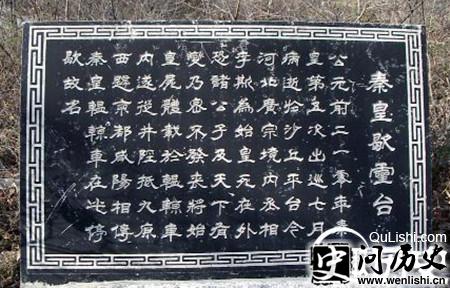 秦皇歇靈台
公元前二一零年秦
皇第五次出巡七月
病逝於沙丘平台今
河北廣宗境內丞相
李斯為始皇死在外
恐諸公子及天下有
變乃密不發喪將始
皇屍體載於轀輬車
內遂從井陘抵九原
西京都咸陽相傳
秦皇轀輬車在此停
歇故名
QuLishi.com
问历史
www.wenlishi.com